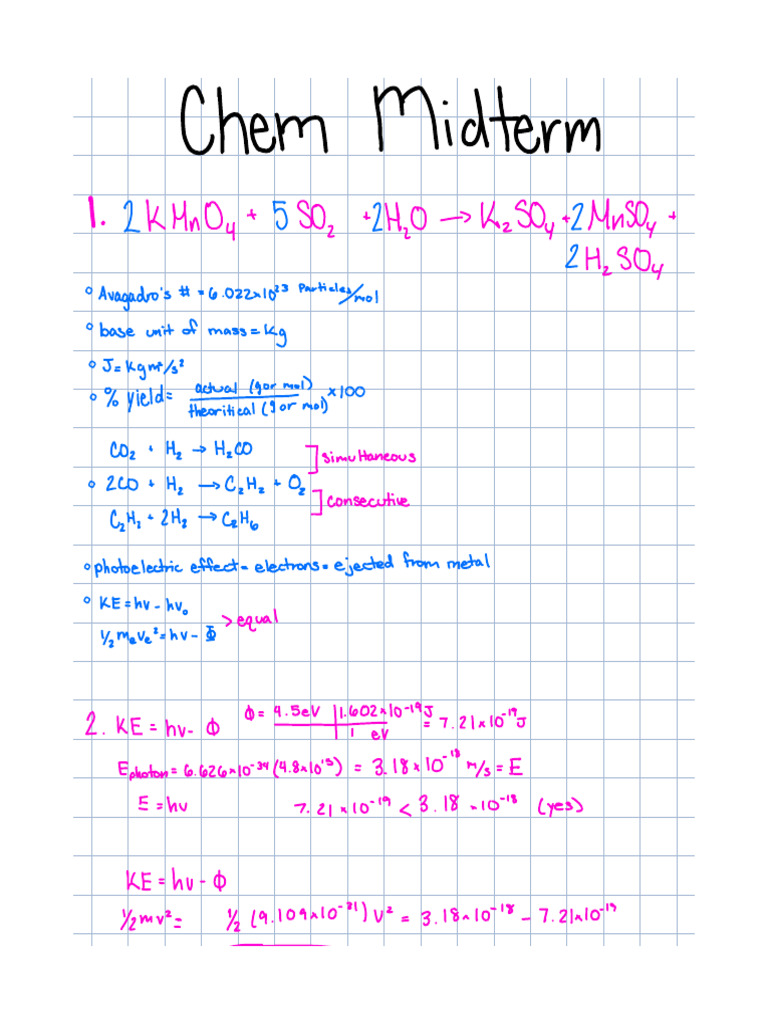 Chem Midterm
1. 2KMnO₄ + 5SO₂ +2H₂O → K₂SO₄ +2MnSO₄ +
2H₂SO₄
◦ Avagadro's # = 6.022×10²³ Particles/mol
◦ base unit of mass = Kg
◦ J = Kgm²/s²
◦ % yield = actual (g or mol) / theoritical (g or mol) × 100
CO₂ + H₂ → H₂CO
] simultaneous
◦ 2CO + H₂ → C₂H₂ + O₂
] consecutive
C₂H₂ + 2H₂ → C₂H₆
◦ photoelectric effect = electrons = ejected from metal
◦ KE = hν - hν₀
> equal
½mₑvₑ² = hν - Φ
2. KE = hν - Φ Φ = 4.5eV | 1.602×10⁻¹⁹J / 1 eV = 7.21×10⁻¹⁹J
E photon = 6.626×10⁻³⁴ (4.8×10¹⁵) = 3.18×10⁻¹⁸ m/s = E
E = hν 7.21×10⁻¹⁹ < 3.18 ×10⁻¹⁸ (yes)
KE = hν - Φ
½mv² = ½ (9.109×10⁻³¹) V² = 3.18×10⁻¹⁸ - 7.21×10⁻¹⁹